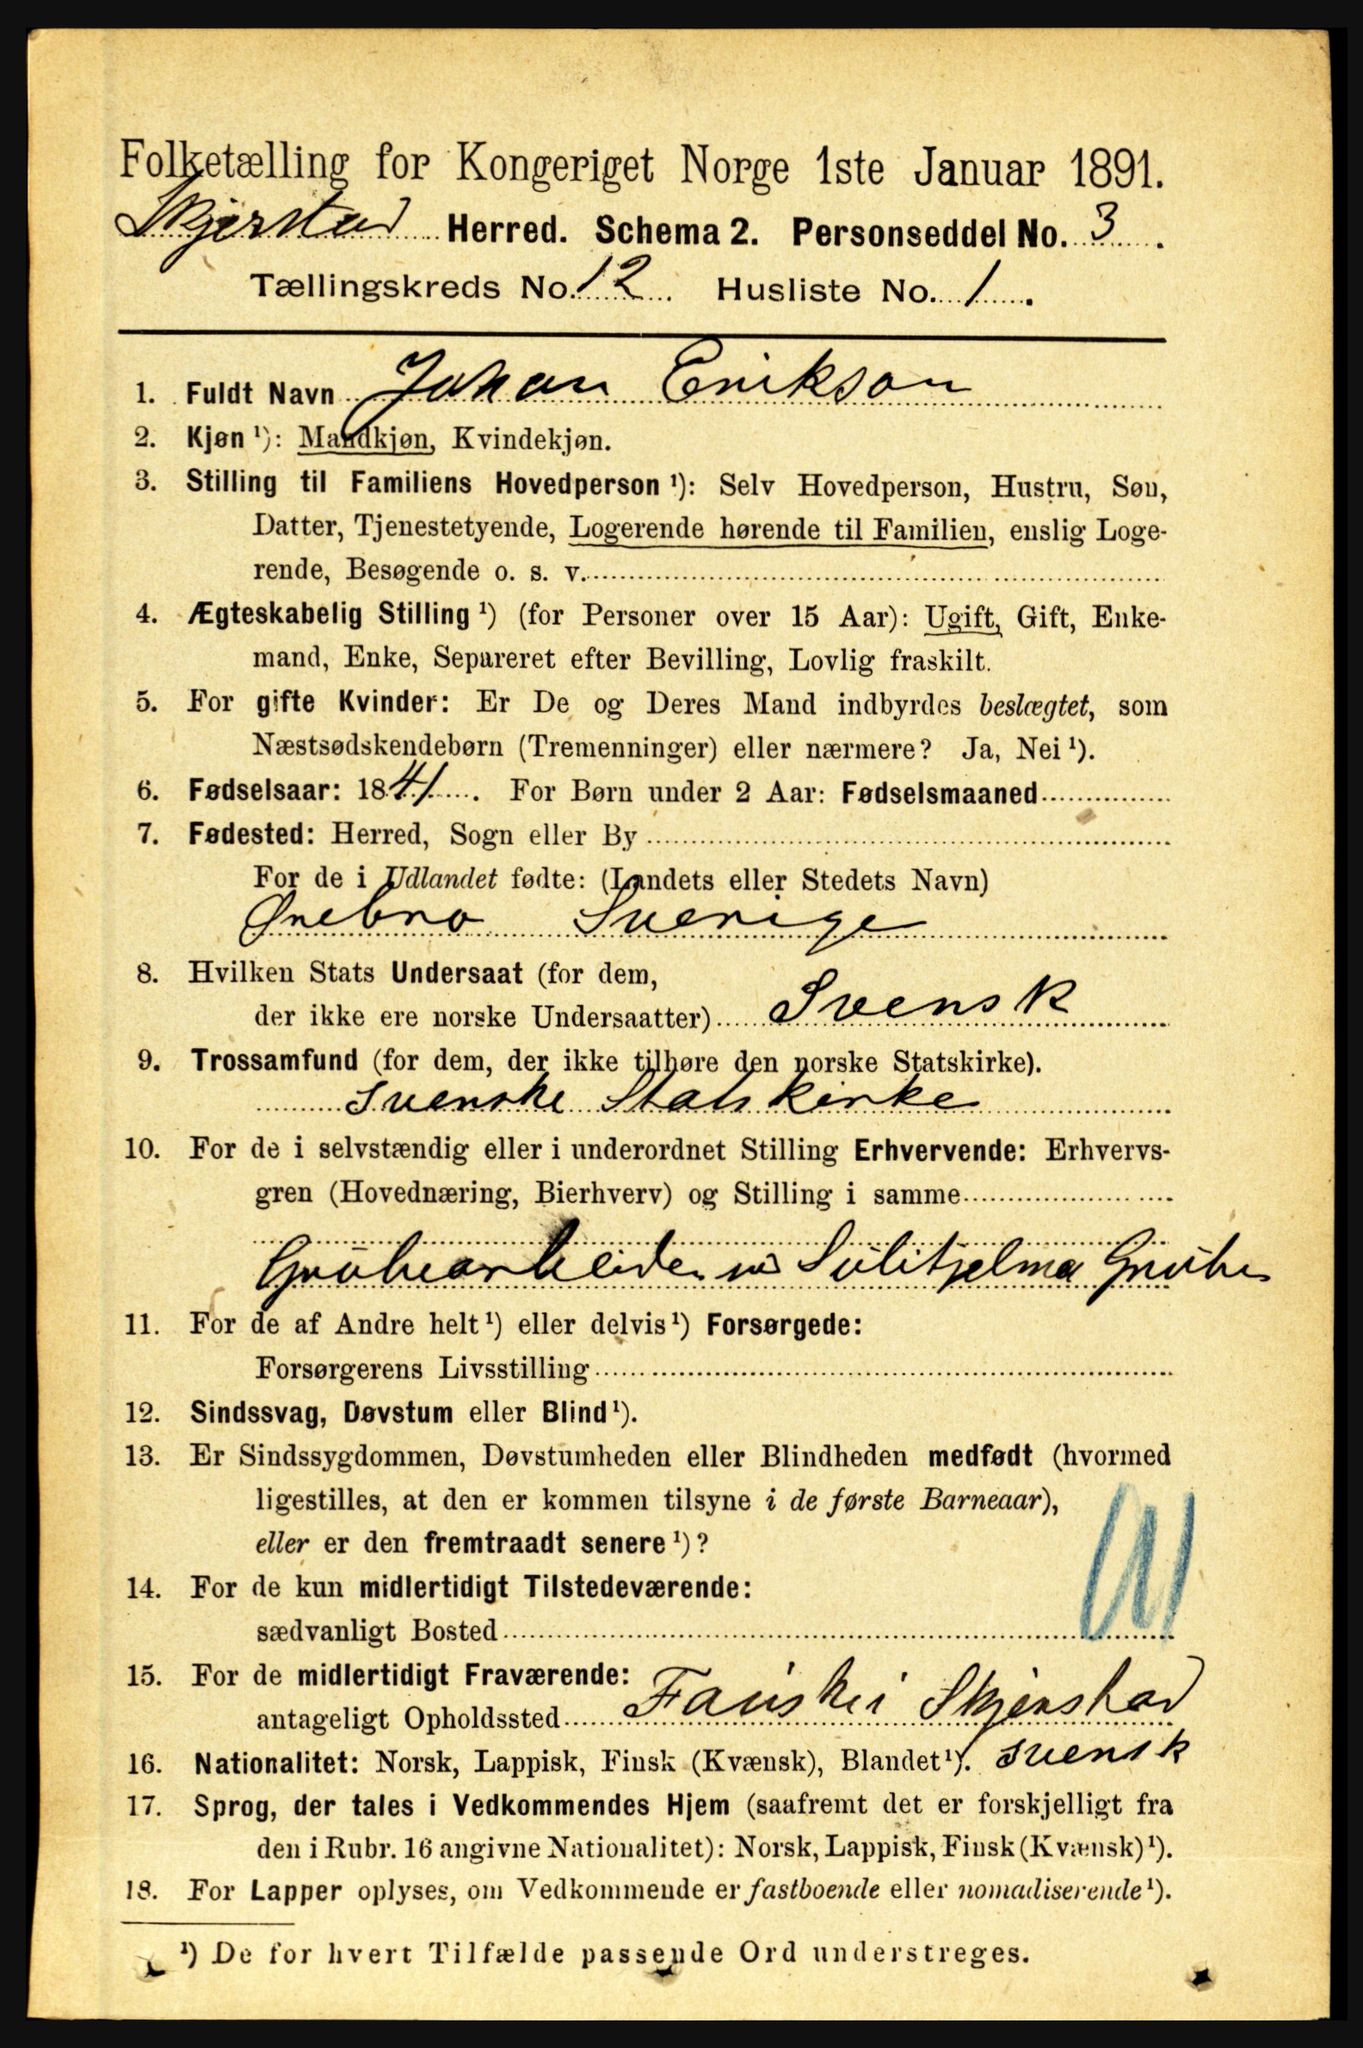 Folketælling for Kongeriget Norge 1ste Januar 1891.
Skjerstad Herred. Schema 2. Personseddel No. 3.
Tællingskreds No. 12 Husliste No. 1.
1. Fuldt Navn Johan Erikson
2. Kjøn ¹): Mandkjøn, Kvindekjøn.
3. Stilling til Familiens Hovedperson ¹): Selv Hovedperson, Hustru, Søn,
Datter, Tjenestetyende, Logerende hørende til Familien, enslig Loge-
rende, Besøgende o. s. v.
4. Ægteskabelig Stilling ¹) (for Personer over 15 Aar): Ugift, Gift, Enke-
mand, Enke, Separeret efter Bevilling, Lovlig fraskilt.
5. For gifte Kvinder: Er De og Deres Mand indbyrdes beslægtet, som
Næstsødskendebørn (Tremenninger) eller nærmere? Ja, Nei ¹).
6. Fødselsaar: 1841. For Børn under 2 Aar: Fødselsmaaned
7. Fødested: Herred, Sogn eller By
For de i Udlandet fødte: (Landets eller Stedets Navn)
Ørebro Sverige
8. Hvilken Stats Undersaat (for dem,
der ikke ere norske Undersaatter) Svensk
9. Trossamfund (for dem, der ikke tilhøre den norske Statskirke).
Svenske Statskirke
10. For de i selvstændig eller i underordnet Stilling Erhvervende: Erhvervs-
gren (Hovednæring, Bierhverv) og Stilling i samme
Grubearbeider v. Sulitjelma Gruber
11. For de af Andre helt ¹) eller delvis ¹) Forsørgede:
Forsørgerens Livsstilling
12. Sindssvag, Døvstum eller Blind ¹).
13. Er Sindssygdommen, Døvstumheden eller Blindheden medfødt (hvormed
ligestilles, at den er kommen tilsyne i de første Barneaar),
eller er den fremtraadt senere ¹)?
14. For de kun midlertidigt Tilstedeværende:
sædvanligt Bosted
15. For de midlertidigt Fraværende:
antageligt Opholdssted Fauske i Skjerstad
16. Nationalitet: Norsk, Lappisk, Finsk (Kvænsk), Blandet ¹). svensk
17. Sprog, der tales i Vedkommendes Hjem (saafremt det er forskjelligt fra
den i Rubr. 16 angivne Nationalitet): Norsk, Lappisk, Finsk (Kvænsk) ¹).
18. For Lapper oplyses, om Vedkommende er fastboende eller nomadiserende ¹).
¹) De for hvert Tilfælde passende Ord understreges.